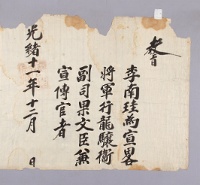 教旨
李南珪為宣畧
將軍行龍驤衛
副司果文臣兼
宣傳官者
光緒十一年十二月 日